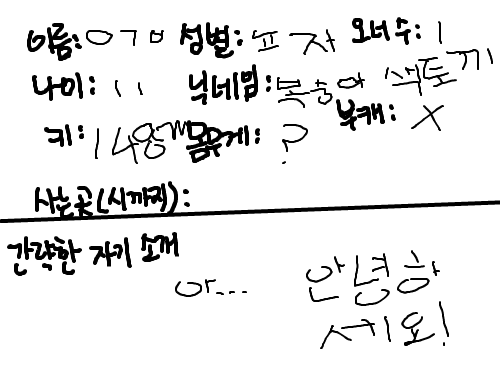 이름:ㅇㄱㅁ 성별:ㅍ자 오너수:1
나이:11 닉네임:복숭아 색토끼
키:148cm 몸무게:? 부캐:X
사는곳(시까지):
간략한 자기 소개
아... 안녕하
세요!